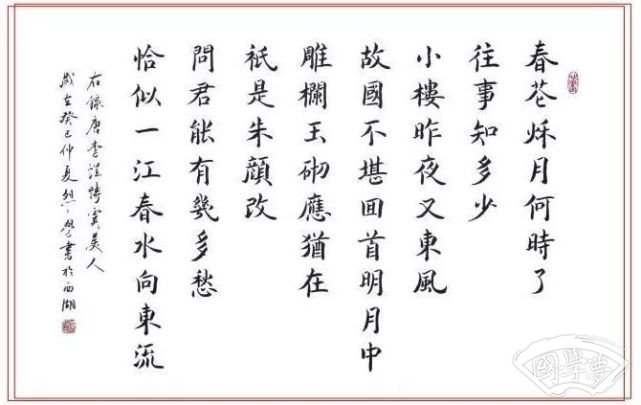 春花秌月何時了
往事知多少
小樓昨夜又東風
故國不堪回首明月中
雕欄玉砌應猶在
祇是朱顔改
問君能有幾多愁
恰似一江春水向東流
右錄唐李煜詞虞美人
歲在癸巳仲夏書於西湖
國學夢